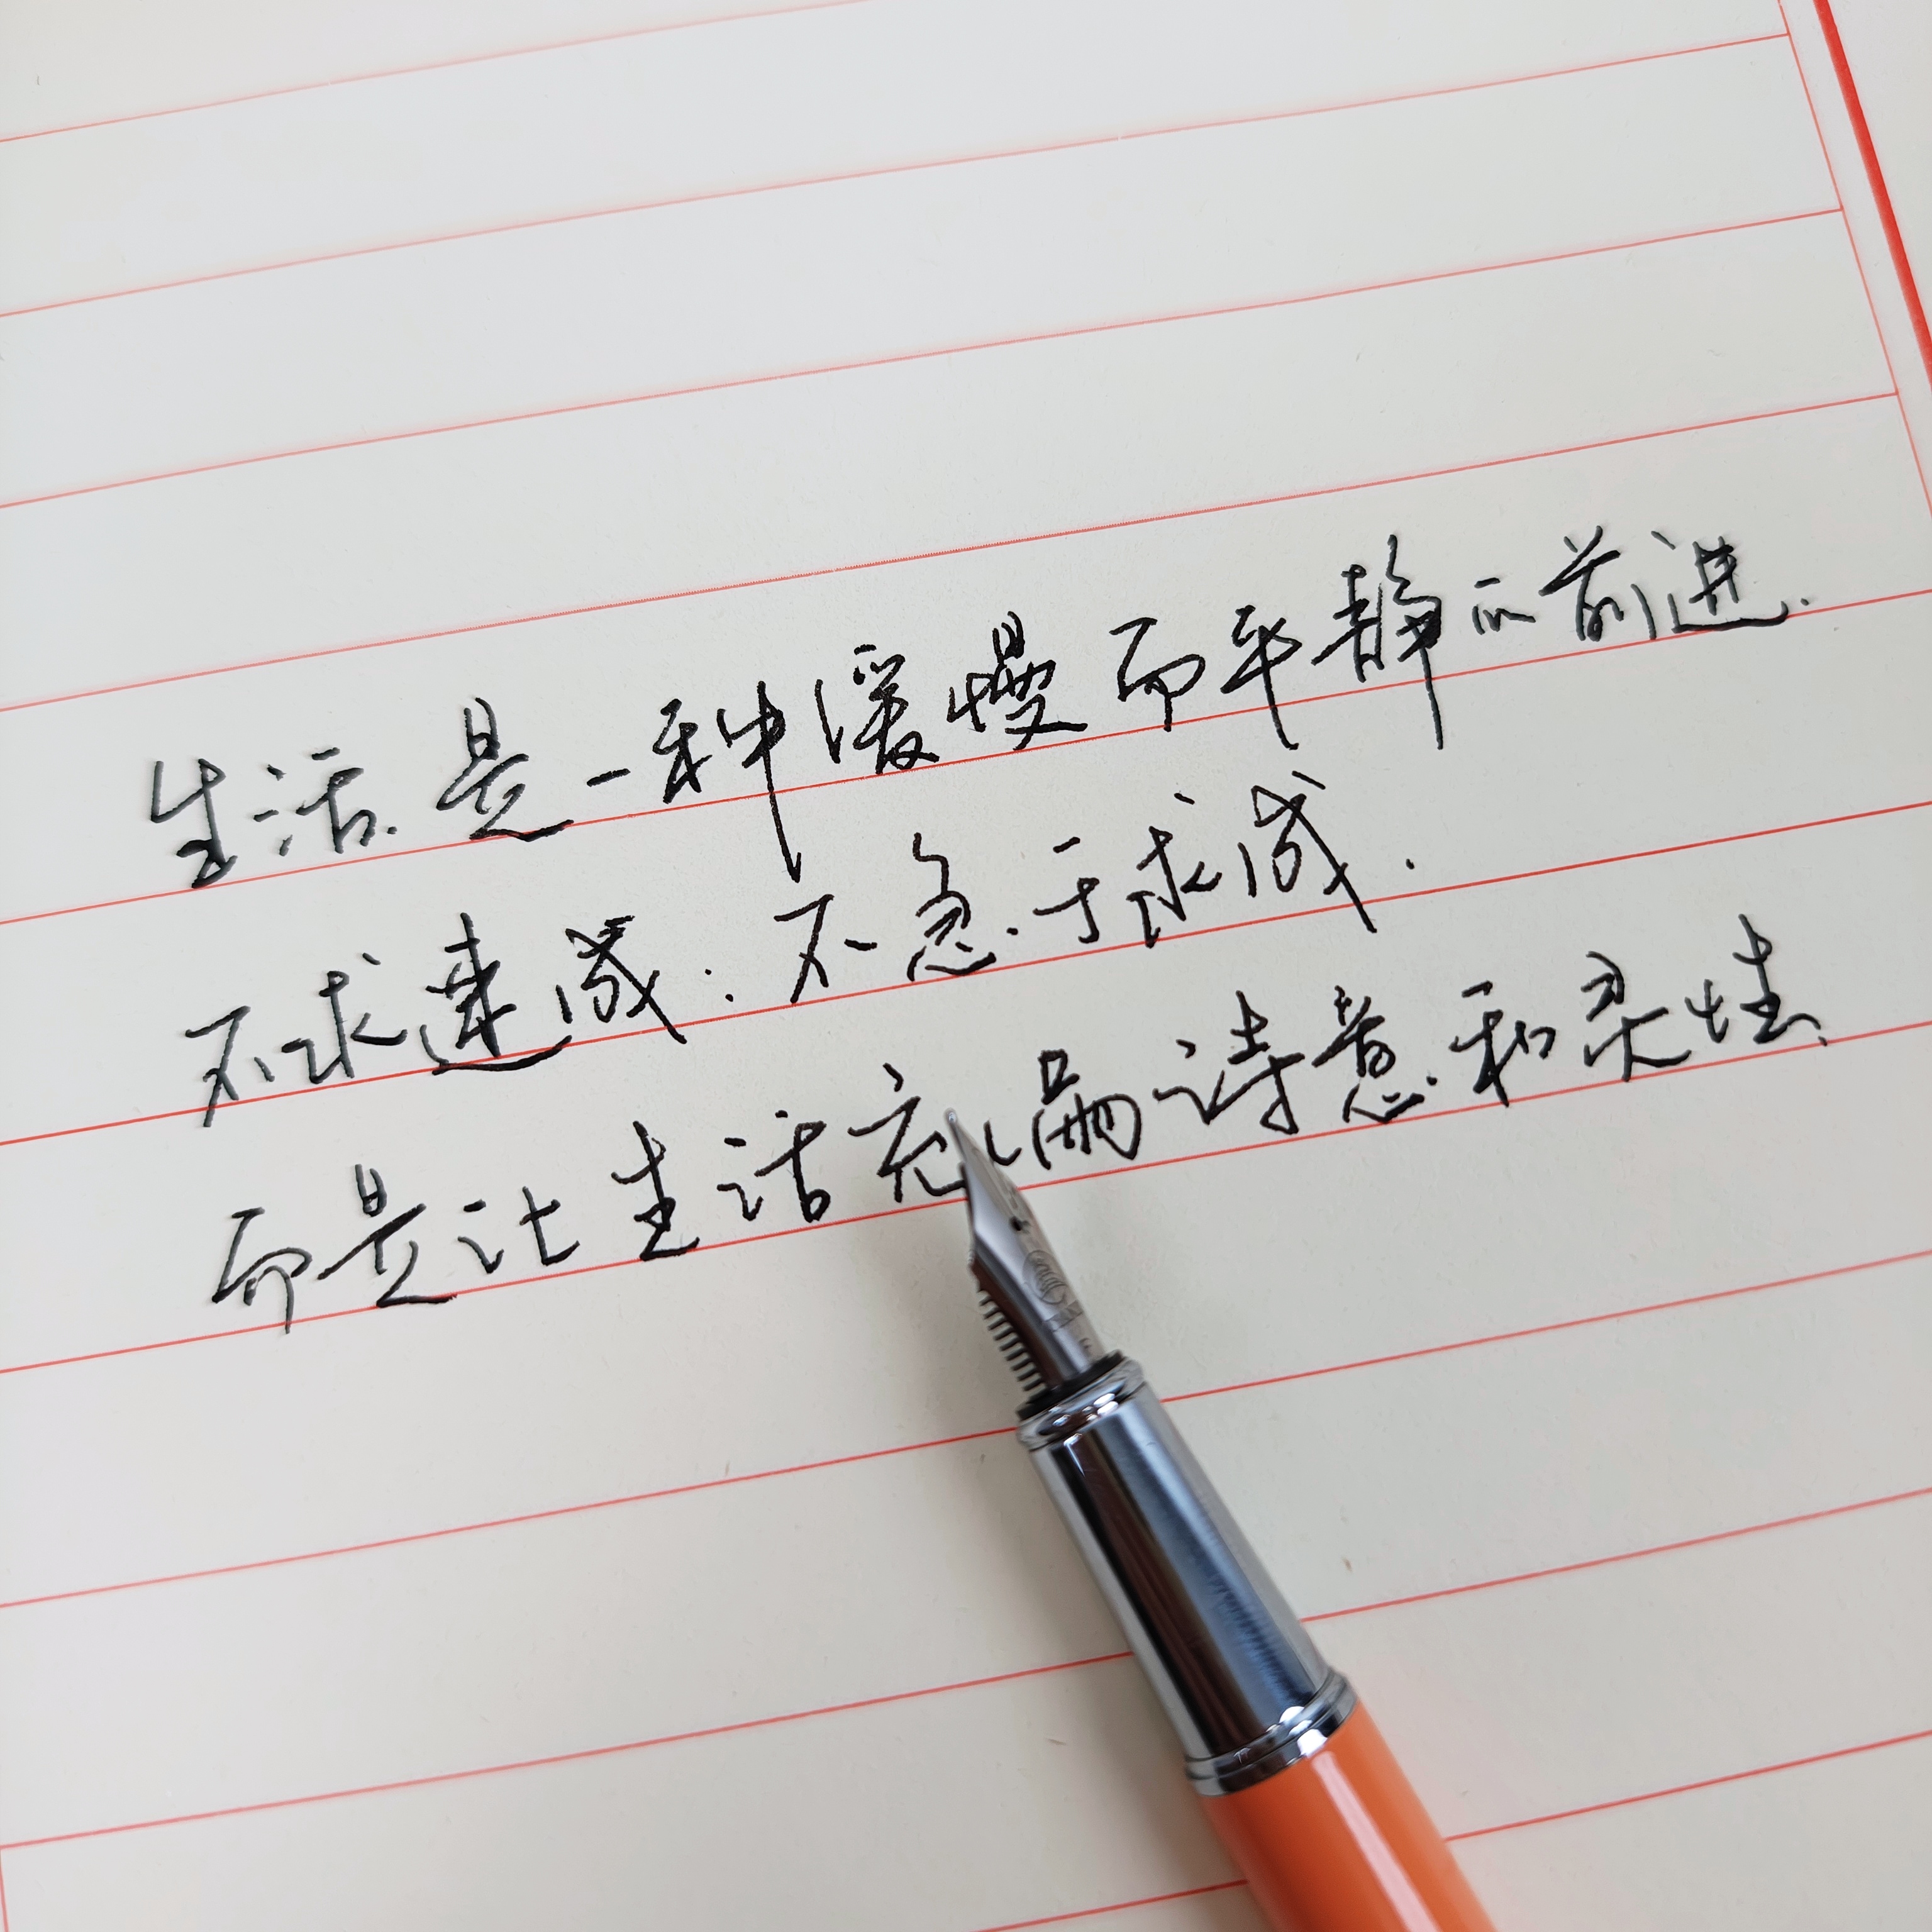 生活是一种缓慢而平静的前进.
不求速成.不急于求成.
而是让生活充满诗意和灵性.